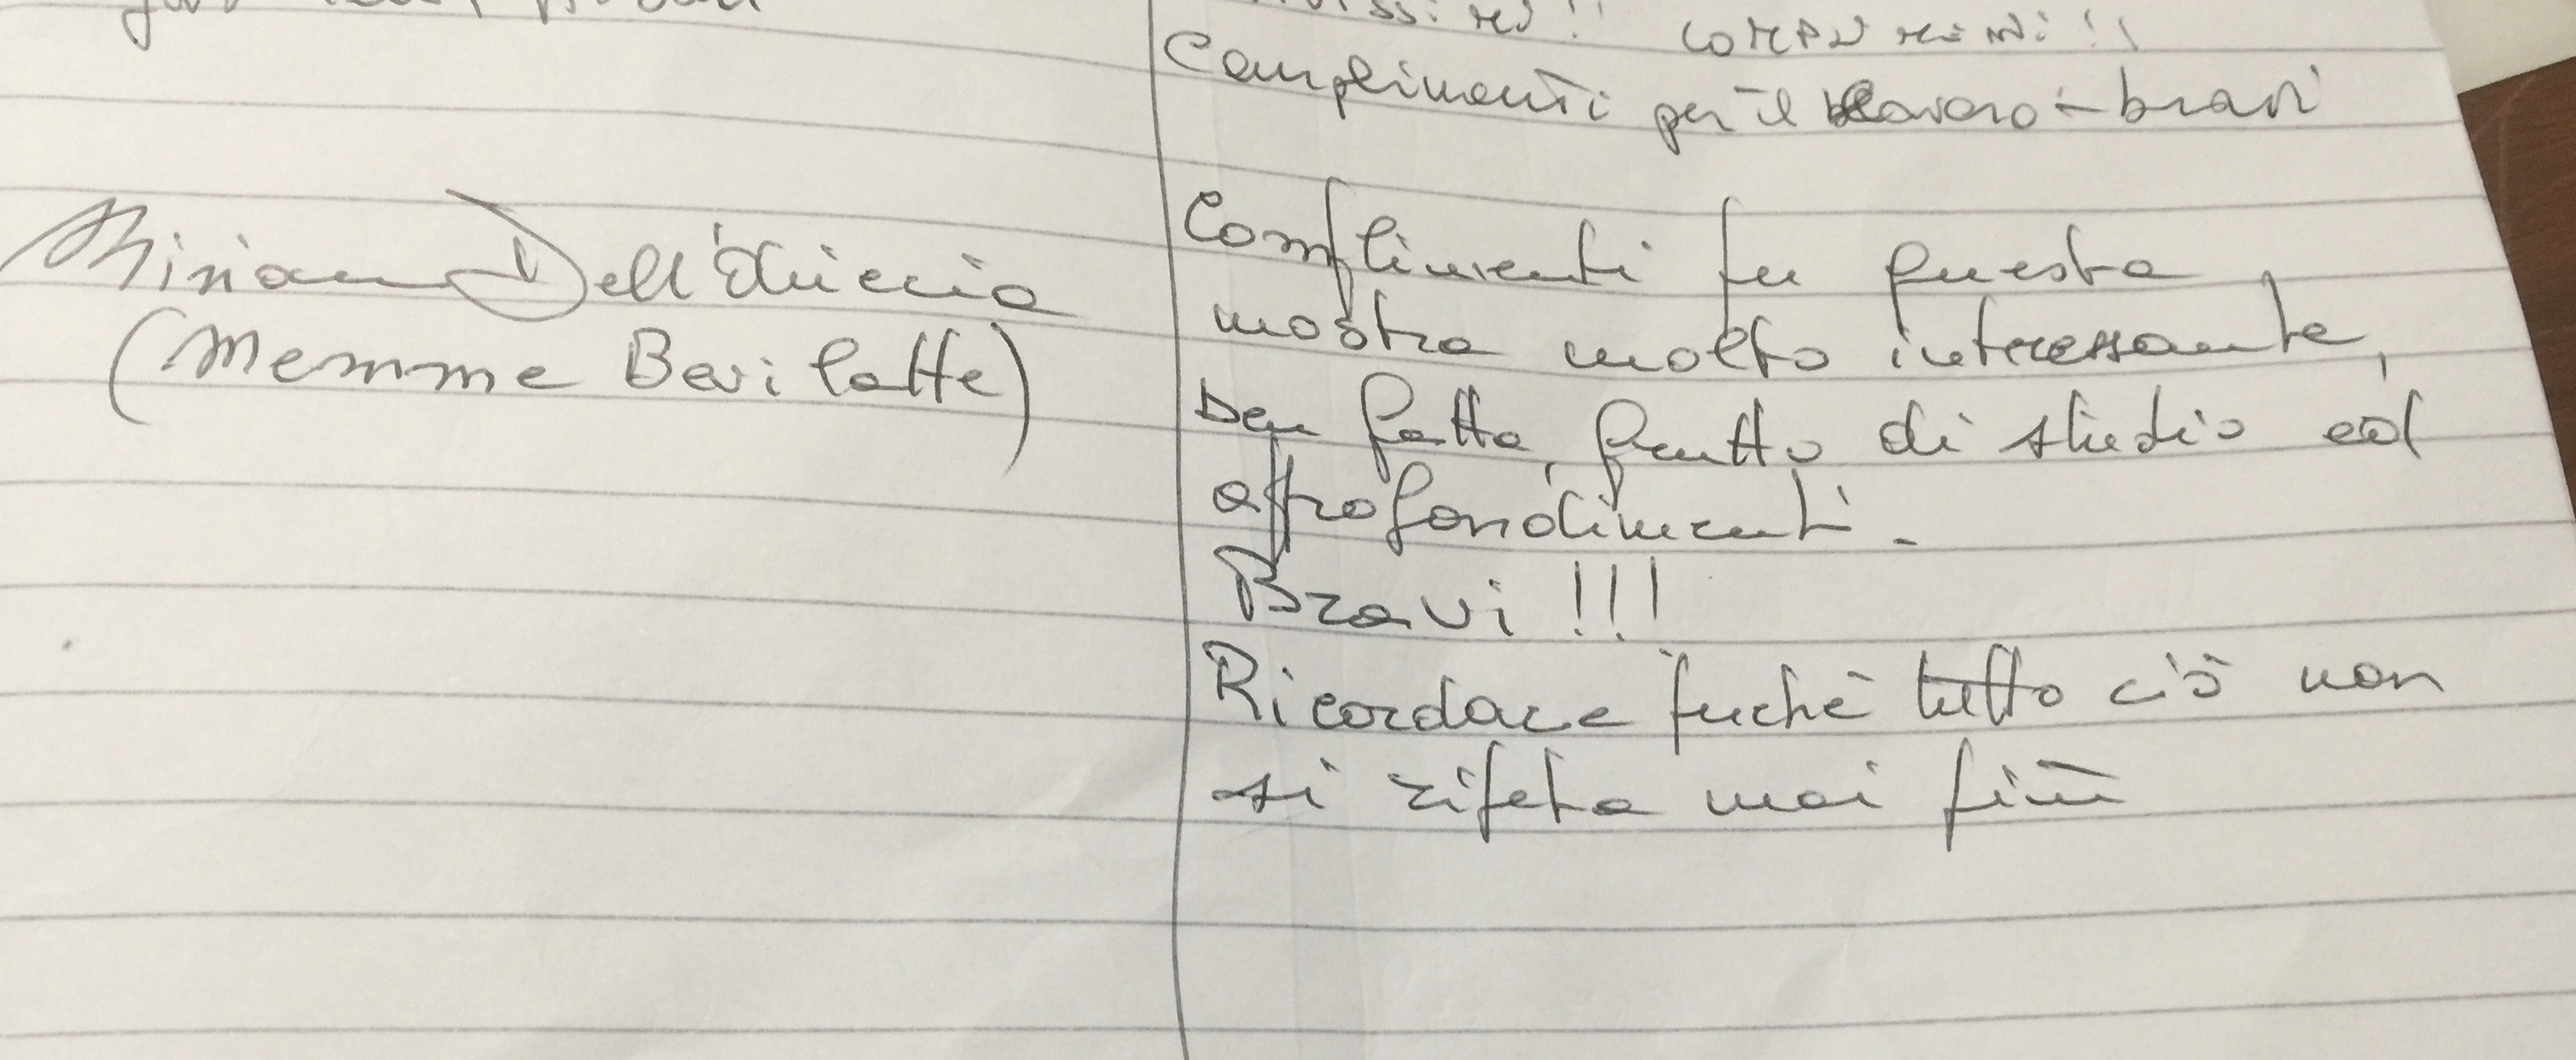 COMPLIMENTI!!
Complimenti per il lavoro - bravi
Miriam Dell'
(Memme Bevilatte)
Complimenti per questa
mostra molto interessante,
ben fatta, frutto di studio ed
approfondimenti.
Bravi !!!
Ricordare perché tutto ciò non
si ripeta mai più